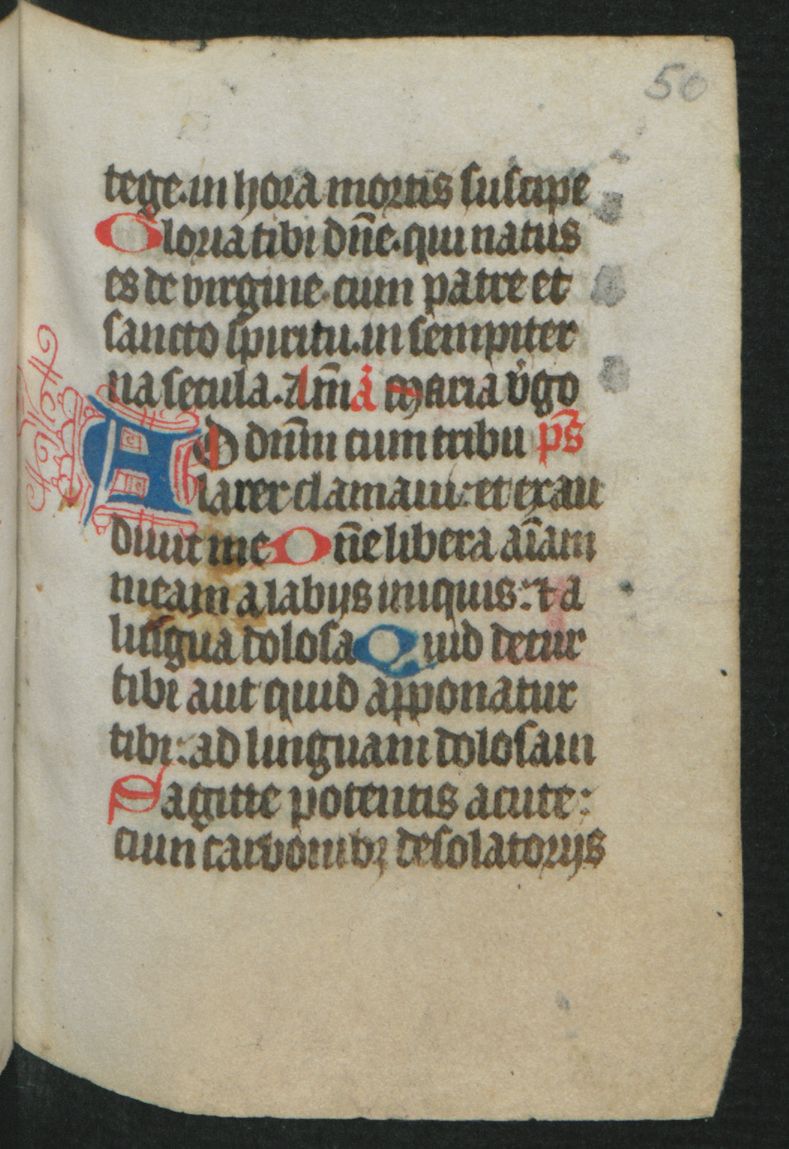 50
tege. in hora mortis suscipe
Gloria tibi dn̄e. qui natus
es de virgine. cum patre et
sancto spiritu. in sempiter
na secula. Am̄ ā Maria v̾go
AD dn̄m cum tribu ps̄
larer clamaui: et exau
diuit me Dn̄e libera aīam
meam a labijs iniquis: et a
lingua dolosa Quid detur
tibi aut quid apponatur
tibi: ad linguam dolosam
Sagitte potentis acute:
cum carbonibꝫ desolatorijs